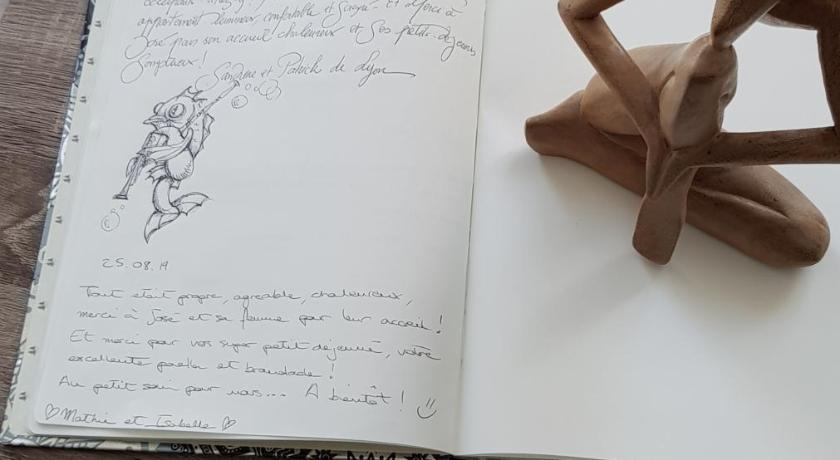 appartement lumineux, confortable et
José pour son accueil chaleureux et ses petits-déjeuners
Somptueux !
Sandrine et Patrick de Lyon
25.08.19
Tout était propre, agréable, chaleureux,
merci à José et sa femme pour leur accueil !
Et merci pour vos super petit déjeuné, votre
excellente paella et brandade !
Au petit soin pour nous... A bientôt !
Mathie et Isabelle